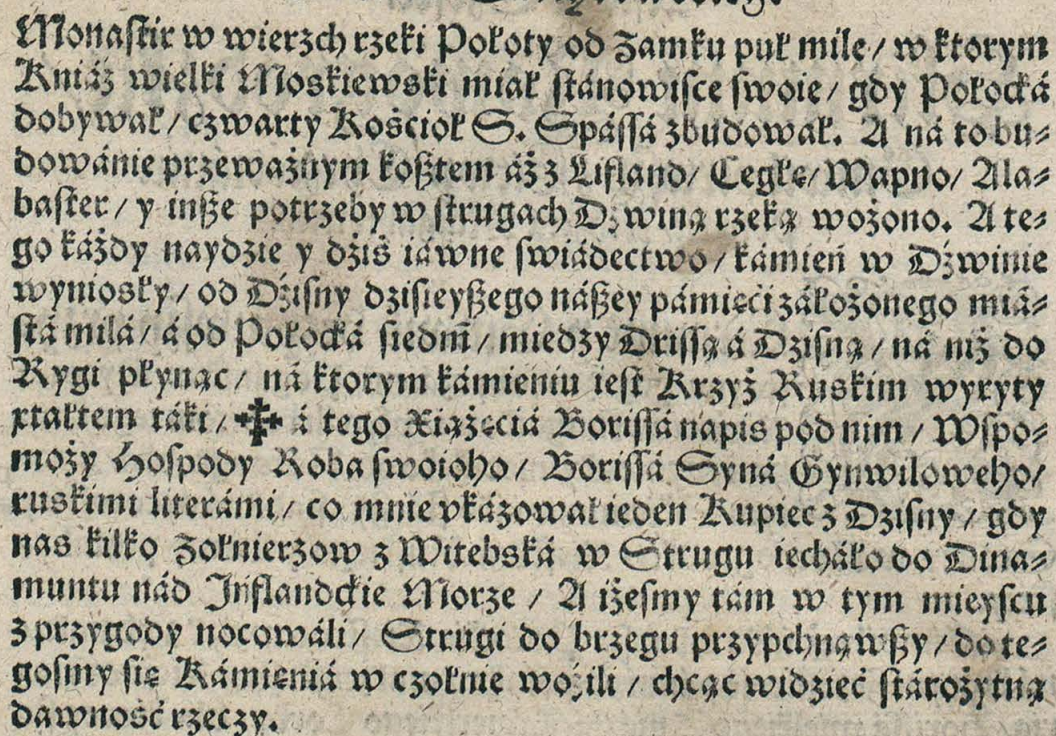 Monastir w wierzch rzeki Połoty od Zamku puł mile / w ktorym
Kniáź wielki Moskiewski miał stánowisce swoie / gdy Połocká
dobywał / czwarty Kościoł S. Spássá zbudował. A ná to bu⸗
dowánie przeważnym kosztem áż z Lifland / Cegłę / Wapno / Ala⸗
baster / y insze potrzeby w strugach Dzwiną rzeką wożono. A te⸗
go káżdy naydzie y dźiś iáwne swiádectwo / kámień w Dźwinie
wyniosły / od Dźisny dzisieyszego nászey pámięći záłożonego miá⸗
stá milá / á od Połocká siedm̃ / miedzy Drissą á Dzisną / ná niż do
Rygi płynąc / ná ktorym kámieniu iest Krzyż Ruskim wyryty
xtałtem táki / ☦ á tego Xiążęciá Borissá nápis pod nim / Wspo⸗
moży Hospody Roba swoioho / Borissá Syná Gynwiloweho /
ruskimi literámi / co mnie vkázował ieden Kupiec z Dzisny / gdy
nas kilko Zołnierzow z Witebská w Strugu iecháło do Dina⸗
muntu nád Inflandckie Morze / A iżesmy tám w tym mieyscu
z przygody nocowáli / Strugi do brzegu przypchnąwszy / do te⸗
gosmy się Kámieniá w czołnie woźili / chcąc widzieć stárożytną
dawność rzeczy.